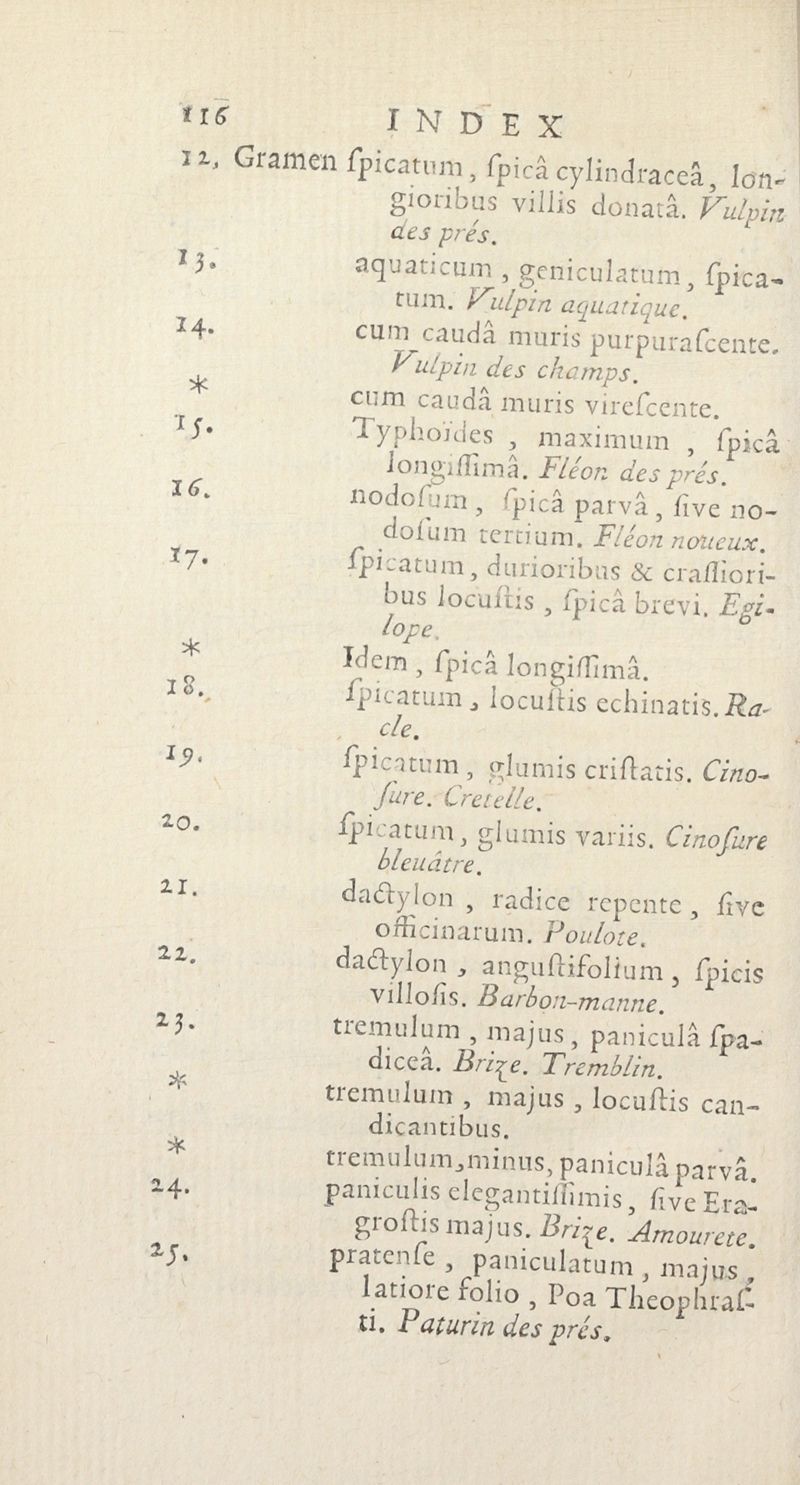 116 INDEX
12, Gramen ſpicatum, ſpicâ cylindraceâ, lon-
gioribus villis donatâ. Vulpin
des prés.
13. aquaticum, geniculatum, ſpica-
tum. Vulpin aquatique.
14. cum caudâ muris purpuraſcente.
Vulpin des champs.
* cum caudâ muris vireſcente.
15. Typhoïdes, maximum, ſpicâ
longiſſimâ. Fléon des prés.
16. nodoſum, ſpicâ parvâ, ſive no-
doſum tertium. Fléon noueux.
17. ſpicatum, durioribus & craſſiori-
bus locuſtis, ſpicâ brevi. Egi-
lope.
* Idem, ſpicâ longiſſimâ.
18. ſpicatum, locuſtis echinatis. Ra-
cle.
19. ſpicatum, glumis criſtatis. Cino-
ſure. Cretelle.
20. ſpicatum, glumis variis. Cinoſure
bleuâtre.
21. dactylon, radice repente, ſive
officinarum. Poulote.
22. dactylon, anguſtifolium, ſpicis
villoſis. Barbon-manne.
23. tremulum, majus, paniculâ ſpa-
diceâ. Brize. Tremblin.
* tremulum, majus, locuſtis can-
dicantibus.
* tremulum, minus, paniculâ parvâ.
24. paniculis elegantiſſimis, ſive Era-
groſtis majus. Brize. Amourete.
25. pratenſe, paniculatum, majus,
latiore folio, Poa Theophraſ-
ti. Paturin des prés.